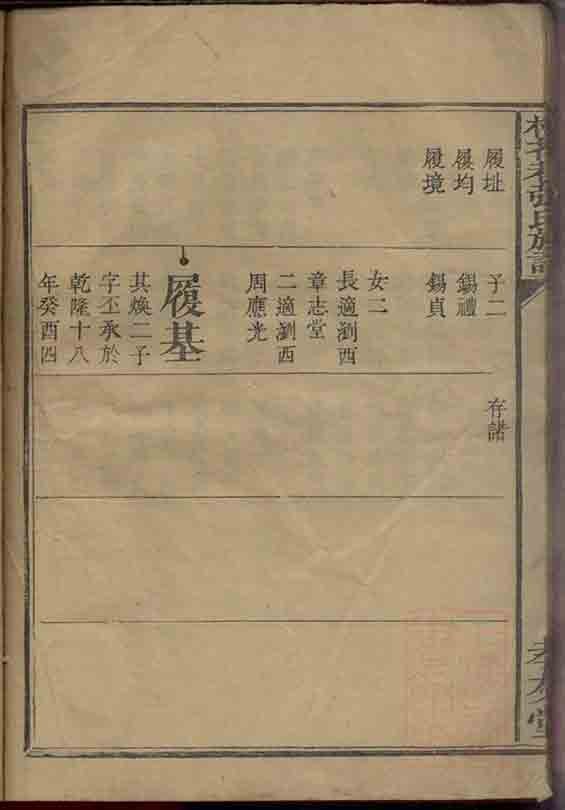 履址
履均
履境
子二
錫禮
錫貞
女二
長適瀏西
章志堂
二適瀏西
周應光
履基
其煥二子
字丕承於
乾隆十八
年癸酉四
存諾